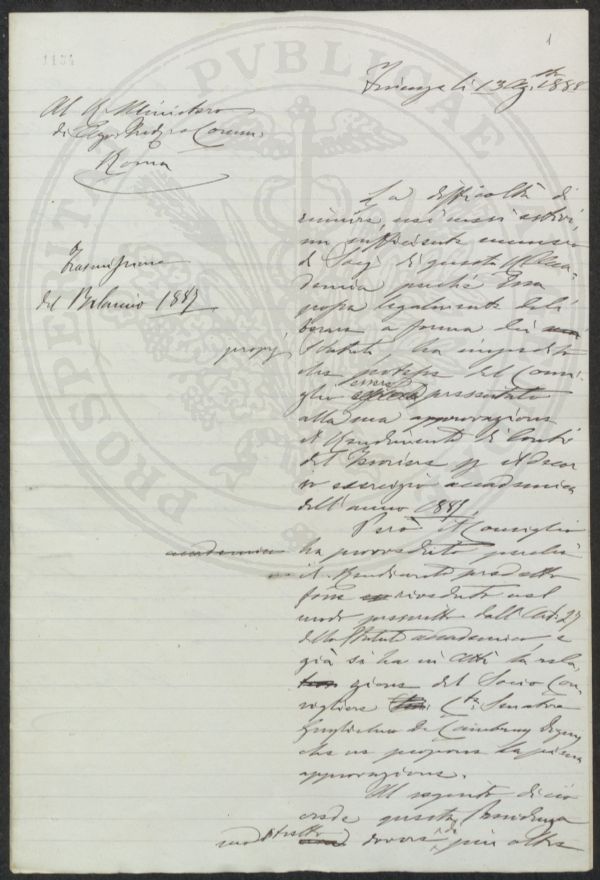 1134
1
Firenze li 13 Agto 1888
Al R. Ministero
di Agr. Ind. e Comm.
Roma
Trasmissione
del Bilancio 1887
La difficoltà di
riunire, nei mesi estivi,
un sufficiente numero
di Socj di questa Acca-
demia perché Essa
possa legalmente deli-
berare a forma dei
proprj Statuti ha impedito
che potesse dal Consi-
glio essere presentato
alla sua approvazione
il Rendimento di Conti
del Tesoriere pel decor
so esercizio accademico
dell'anno 1887.
Però il Consiglio
accademico ha provveduto perché
il Rendiconto predetto
fosse riveduto nel
modo prescritto dall'Art. 27
dello Statuto accademico e
già si ha in Atti la rela
zione del Socio Con-
sigliere Cte. Senatore
Guglielmo de Cambray Digny
che ne propone la piena
approvazione.
Al seguito di ciò
crede questa Presidenza
dover più oltre
PROSPERITATI PVBLICAE